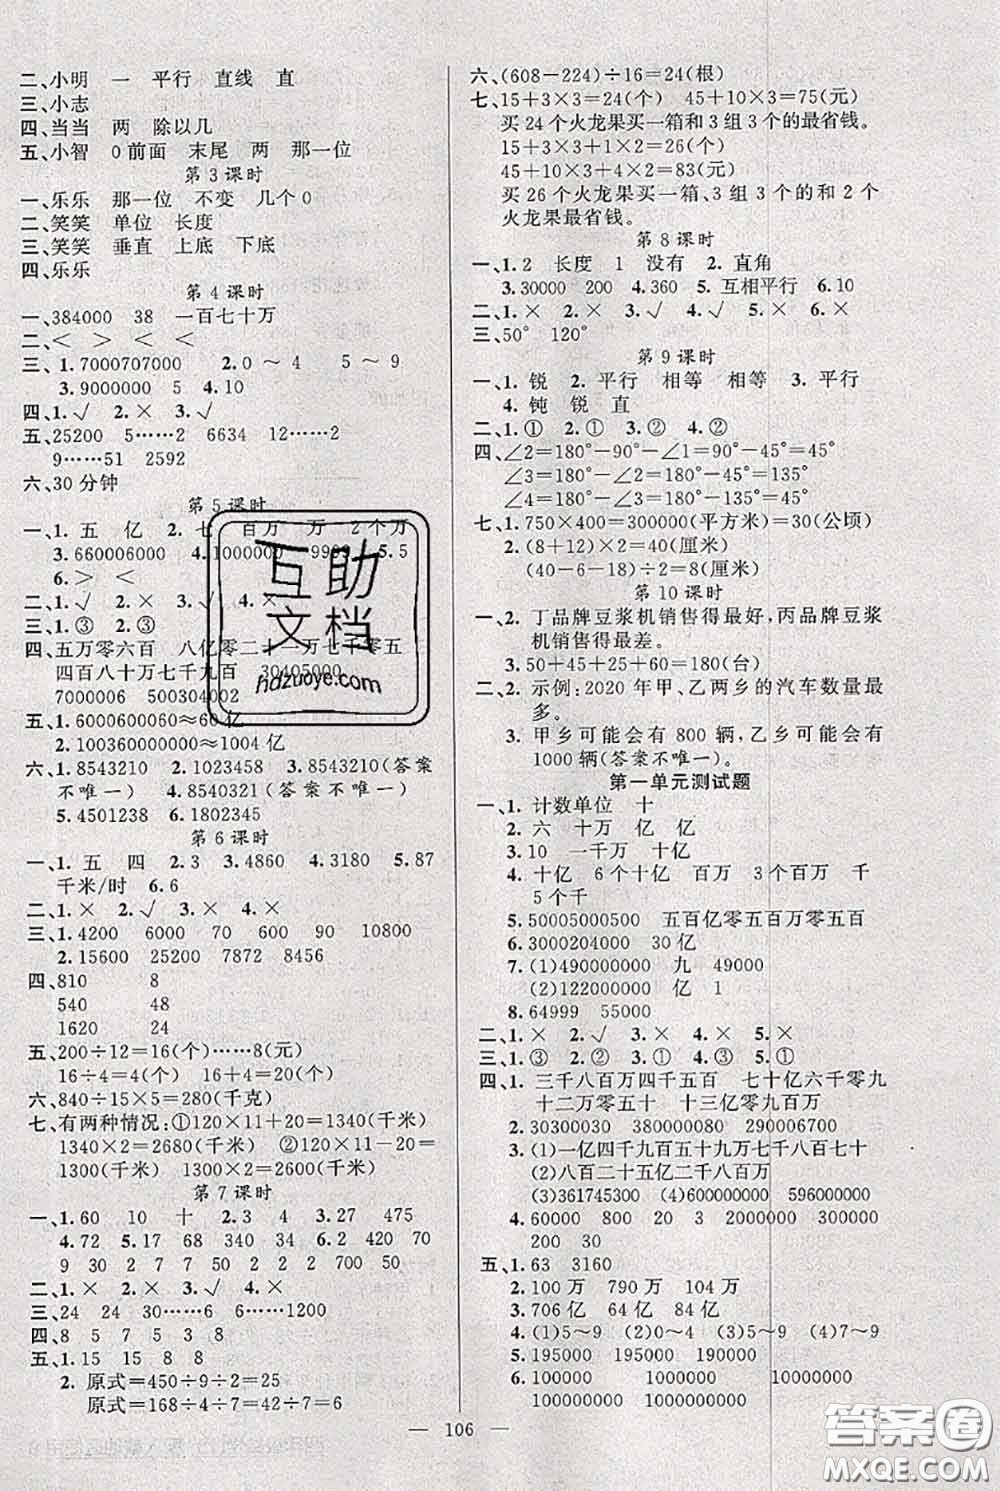 二、小明　一　平行　直线　直
三、小志
四、当当　两　除以几
五、小智　0前面　末尾　两　那一位
第3课时
一、乐乐　那一位　不变　几个0
二、笑笑　单位　长度
三、笑笑　垂直　上底　下底
四、乐乐
第4课时
一、384000　38　一百七十万
二、＜　＞　＜　＜
三、1.7000707000　2.0～4　5～9
3.9000000　5　4.10
四、1.√　2.×　3.√
五、25200　5……2　6634　12……2
9……51　2592
六、30分钟
第5课时
一、1.五　亿　2.七　百万　万　2个万
3.660006000　4.1000000　9999　5.5
6.＞　＜
二、1.√　2.√　3.√　4.×
三、1.③　2.③
四、五万零六百　八亿零二十一万七千零五
四百八十万七千九百　30405000
7000006　500304002
五、1.6000600060≈60亿
2.100360000000≈1004亿
六、1.8543210　2.1023458　3.8543210(答案
不唯一)　4.8540321(答案不唯一)
5.4501238　6.1802345
第6课时
一、1.五　四　2.3　3.4860　4.3180　5.87
千米/时　6.6
二、1.×　2.√　3.×　4.×
三、1.4200　6000　70　600　90　10800
2.15600　25200　7872　8456
四、810　8
540　48
1620　24
五、200÷12=16(个)……8(元)
16÷4=4(个)　16+4=20(个)
六、840÷15×5=280(千克)
七、有两种情况:①120×11+20=1340(千米)
1340×2=2680(千米)　②120×11-20=
1300(千米)　1300×2=2600(千米)
第7课时
一、1.60　10　十　2.3　4　3.27　475
4.72　17　68　340　34　6.2　420　420
9　30　50　7　50　2　2　2　700　700
二、1.×　2.×　3.√
三、24　24　30……6　6……1200
四、8　5　7　5　3　8
五、1.15　15　8　8
2.原式=450÷9÷2=25
原式=168÷4÷7=42÷7=6
六、(608-224)÷16=24(根)
七、15+3×3=24(个)　45+10×3=75(元)
买24个火龙果买一箱和3组3个的最省钱。
15+3×3+1×2=26(个)
45+10×3+4×2=83(元)
买26个火龙果买一箱、3组3个的和2个
火龙果最省钱。
第8课时
一、1.2　长度　1　没有　2.直角
3.30000　200　4.360　5.互相平行　6.10
二、1.×　2.×　3.√　4.√　5.×　6.×
三、50°　120°
第9课时
一、1.锐　2.平行　相等　相等　3.平行
4.钝　锐　直
二、1.①　2.①　3.②　4.②
四、∠2=180°-90°-∠1=90°-45°=45°
∠3=180°-∠2=180°-45°=135°
∠4=180°-∠3=180°-135°=45°
七、1.750×400=300000(平方米)=30(公顷)
2.(8+12)×2=40(厘米)
(40-6-18)÷2=8(厘米)
第10课时
一、2.丁品牌豆浆机销售得最好,丙品牌豆浆
机销售得最差。
3.50+45+25+60=180(台)
二、2.示例:2020年甲、乙两乡的汽车数量最
多。
3.甲乡可能会有800辆,乙乡可能会有
1000辆(答案不唯一)。
第一单元测试题
一、1.计数单位　十
2.六　十万　亿　亿
3.10　一千万　十亿
4.十亿　6个十亿　百万　3个百万　千
5个千
5.50005000500　五百亿零五百万零五百
6.3000204000　30亿
7.(1)490000000　九　49000
(2)122000000　亿　1
8.64999　55000
二、1.×　2.√　3.×　4.×　5.×
三、1.③　2.②　3.①　4.③　5.①
四、1.三千八百万四千五百　七十亿六千零九
十二万零五十　十三亿零九百万
2.30300030　380000080　290006700
3.(1)一亿四千九百五十九万七千八百七十
(2)八百二十五亿二千八百万
(3)361745300　(4)600000000　596000000
4.60000　800　20　3　2000000　300000
200　30
五、1.63　3160
2.100万　790万　104万
3.706亿　64亿　84亿
4.(1)5～9　(2)0～4　(3)5～9　(4)7～9
5.195000　195000　200000
6.100000　1000000　10000000
100000000　1000000000
互助
文档
hdzuoye.com
106
答案圈
MXQE.COM